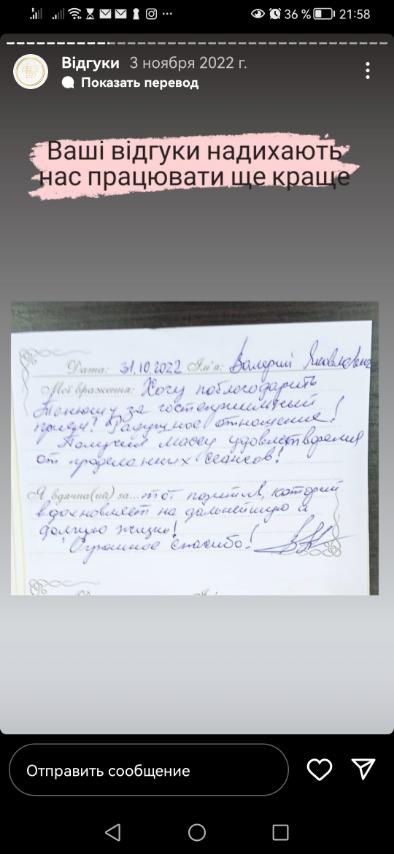 36 % 21:58
Відгуки 3 ноября 2022 г.
Показать перевод
Ваші відгуки надихають
нас працювати ще краще
Дата: 31.10.2022 Ім'я: Валерий Яковлевич
Мої враження: Хочу поблагодарить
за гостеприимный
приём! Радушное отношение!
Получил массу удовлетворения
от проделанных сеансов!
Я вдячна(ий) за... тот позитив, который
вдохновляет на дальнейшую и
долгую жизнь!
Огромное спасибо!
Отправить сообщение